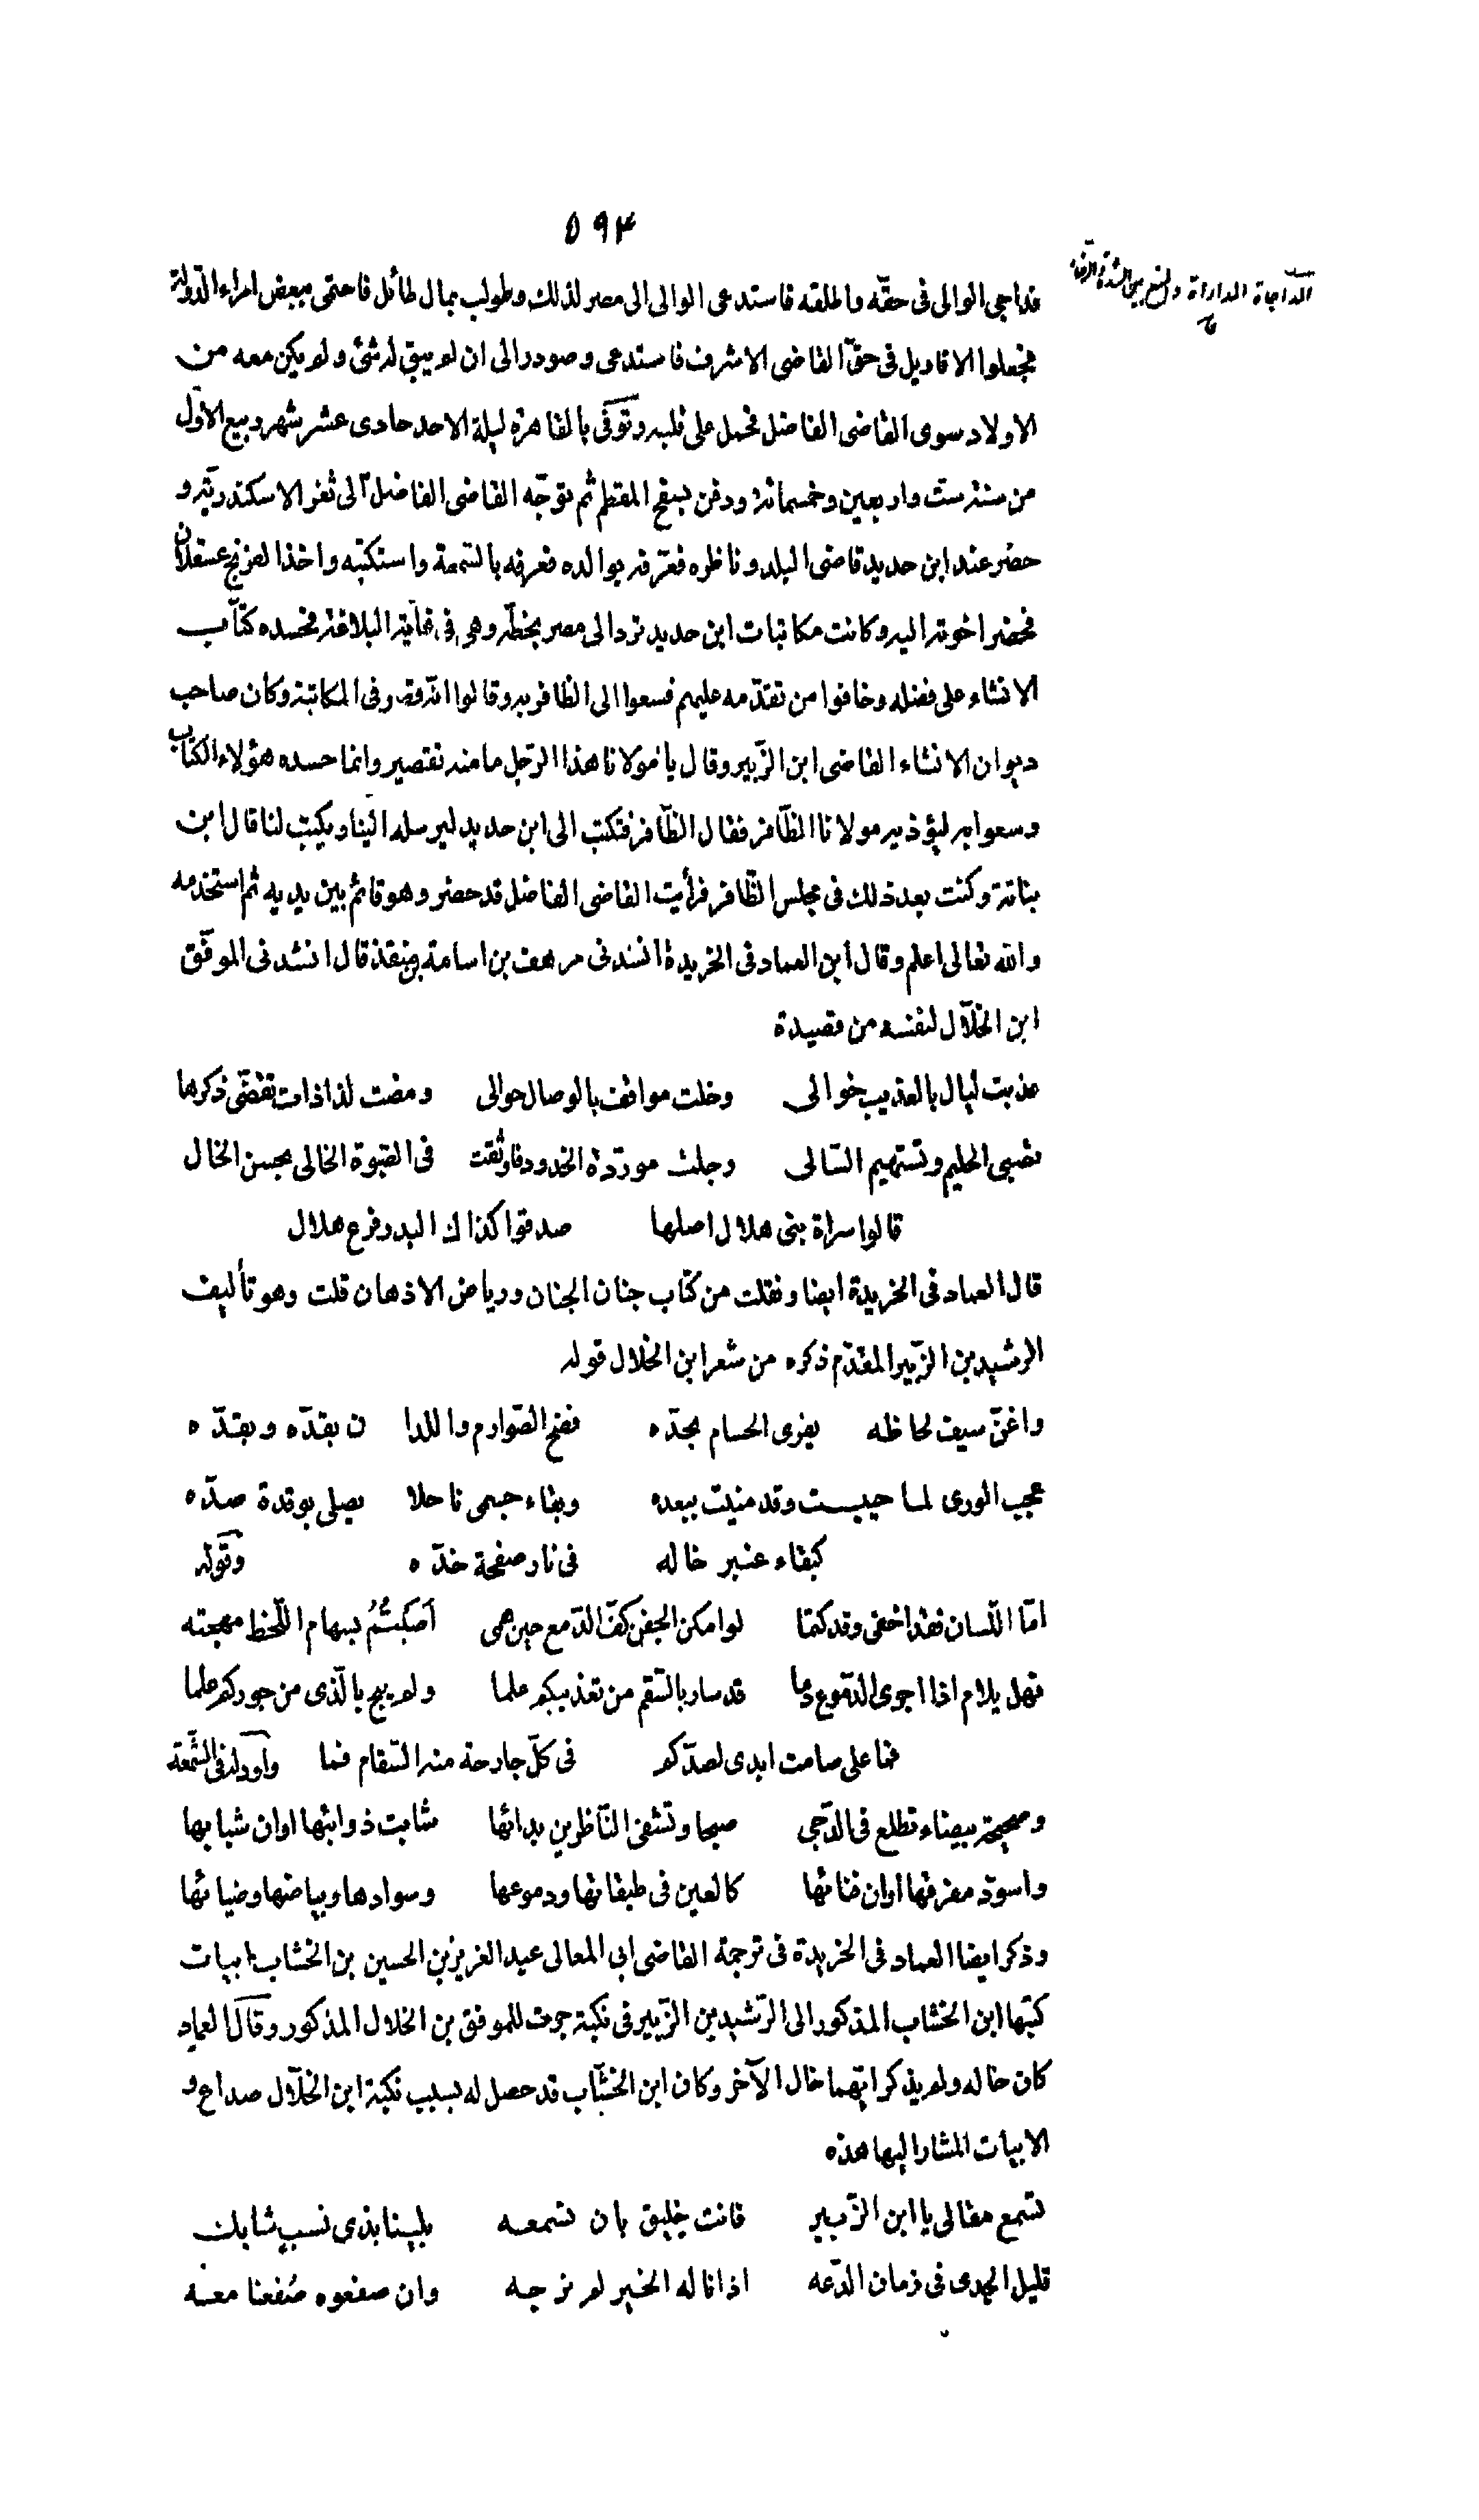 ٥٩٤
فداجى الوالى فى حقّه واطلقه فاستدعى الوالى الى مصر لذلك وطولب بمال طائل فاحتمى ببعض امراء الدّولة
فجعلوا الاقاويل فى حقّ القاضى الاشرف فاستدعى وصودر الى ان لم يبق له شئ ولم يكن معه من
الاولاد سوى القاضى الفاضل فحمل على قلبه وتوفّى بالقاهرة ليلة الاحد حادى عشر شهر ربيع الاوّل
من سنة ستّ واربعين وخمسمائة ودفن بسفح المقطم ثم توجّه القاضى الفاضل الى ثغر الاسكندريّة و
حضر عند ابن حديد قاضى البلد وناظره فعرّفه بوالده فعرفه بالسّمعة واستكتبه واخذ الفرنج عسقلان
فحضر اخوته اليه وكانت مكاتبات ابن حديد ترد الى مصر بخطّه وهى فى غاية البلاغة فحسده كتّاب
الانشاء على فضله وخافوا من تقدّمه عليهم فسعوا الى الظافر به وقالوا انّه قصّر فى المكاتبة وكان صاحب
ديوان الانشاء القاضى ابن الزّبير وقال يا مولانا هذا الرّجل ما منه تقصير وانما حسده هؤلاء الكتاب
وسعوا به ليؤذيه مولانا الظّافر فقال الظّافر فتكتب الى ابن حديد ليرسله الينا ويكتب لنا قال ابن
بنانة وكنت بعد ذلك فى مجلس الظّافر فرأيت القاضى الفاضل قد حضر وهو قائم بين يديه ثم استخدمه
والله تعالى اعلم وقال ابن العماد فى الخريدة انشدنى مرهف بن اسامة بن منقذ قال انشدنى الموفّق
ابن الخلّال لنفسه من قصيدة
عذبت ليال بالعذيب خوالى وخلت مواقف بالوصال حوالى ومضت لذاذات تقضّى ذكرها
تصبى الحليم وتستهيم السّالى وجلت مورّدة الخدود فاوثقت فى الصّبوة الخالى بحسن الخال
قالوا سراة بنى هلال اصلها صدقوا كذاك البدر فرع هلال
قال العماد فى الخريدة ايضا ونقلت من كتاب جنان الجنان ورياض الاذهان قلت وهو تأليف
الرشيد بن الزّبير المقدّم ذكره من شعر ابن الخلال قوله
واغنّ سيف لحاظه يفرى الحسام بحدّه فضح الصّوارم واللدا ن بقدّه وبقدّه
عجب الورى لما حييت وقد منيت ببعده وبقاء جسمى ناحلا يصلى بوقدة صدّه
كبقاء عنبر خاله فى نار صفحة خدّه وقوله
امّا اللّسان فقد اخفى وقد كتما لو امكن الجفن كفّ الدّمع حين همى اَصَبتُمُ بسهام اللّحظ مهجته
فهل يلام اذا اجرى الدّموع دما قد سار بالسّقم من تعذيبكم علما ولم يبح بالّذى من جوركم علما
فما على صامت ابدى لصدّكم فى كلّ جارحة منه السّقام فما واورد له فى الشّمعة
وصحيحة بيضاء تطلع فى الدّجى صبحا وتشفى النّاظرين بدائها شابت ذوائبها اوان شبابها
واسودّ مفرقها اوان فنائها كالعين فى طبقاتها ودموعها وسوادها وبياضها وضيائها
وذكر ايضا العماد فى الخريدة فى ترجمة القاضى ابى المعالى عبد العزيز بن الحسين بن الخشاب ابيات
كتبها ابن الخشاب المذكور الى الرّشيد بن الزّبير فى نكبة جرت للموفق بن الخلال المذكور وقال العماد
كان خاله ولم يذكر ايّهما خال الآخر وكان ابن الخشّاب قد حصل له بسبب نكبة ابن الخلّال صداع و
الابيات المشار اليها هذه
تسمع مقالى يا ابن الزّبير فانت خليق بان تسمعه بلينا بذى نسب شابك
قليل الجدى فى زمان الدّعه اذا ناله الخير لم نرجه وان صفعوه صُفعنا معه